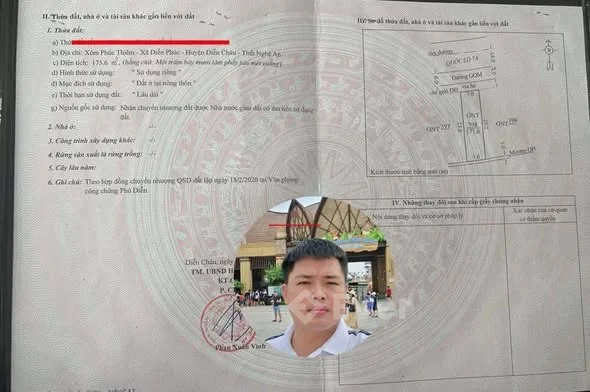 II. Thửa đất, nhà ở và tài sản khác gắn liền với đất
1. Thửa đất:
a) Thửa
b) Địa chỉ: Xóm Phúc Thiêm - Xã Diễn Phúc - Huyện Diễn Châu - Tỉnh Nghệ An
c) Diện tích: 175.6 m², (bằng chữ: Một trăm bảy mươi lăm phẩy sáu mét vuông)
d) Hình thức sử dụng: " Sử dụng riêng "
đ) Mục đích sử dụng: " Đất ở tại nông thôn "
e) Thời hạn sử dụng đất: " Lâu dài "
g) Nguồn gốc sử dụng: Nhận chuyển nhượng đất được Nhà nước giao đất có thu tiền sử dụng
đất.
2. Nhà ở: -/-
3. Công trình xây dựng khác: -/-
4. Rừng sản xuất là rừng trồng: -/-
5. Cây lâu năm: -/-
6. Ghi chú: Theo hợp đồng chuyển nhượng QSD đất lập ngày 18/2/2020 tại Văn phòng
công chứng Phủ Diễn
Diễn Châu, ngày
TM. UBND H
KT.C
P. C
Phan Xuân Vinh
III. Sơ đồ thửa đất, nhà ở và tài sản khác gắn liền với đất
tim đường
QUỐC LỘ 7A
Đường GOM
chỉ giới ĐĐ
vỉa hè
ONT
ONT 297
ONT 299
175.6
7.0
Mương QH
Kích thước tính bằng mét (m)
IV. Những thay đổi sau khi cấp giấy chứng nhận
Nội dung thay đổi và cơ sở pháp lý
Xác nhận của cơ quan
có thẩm quyền